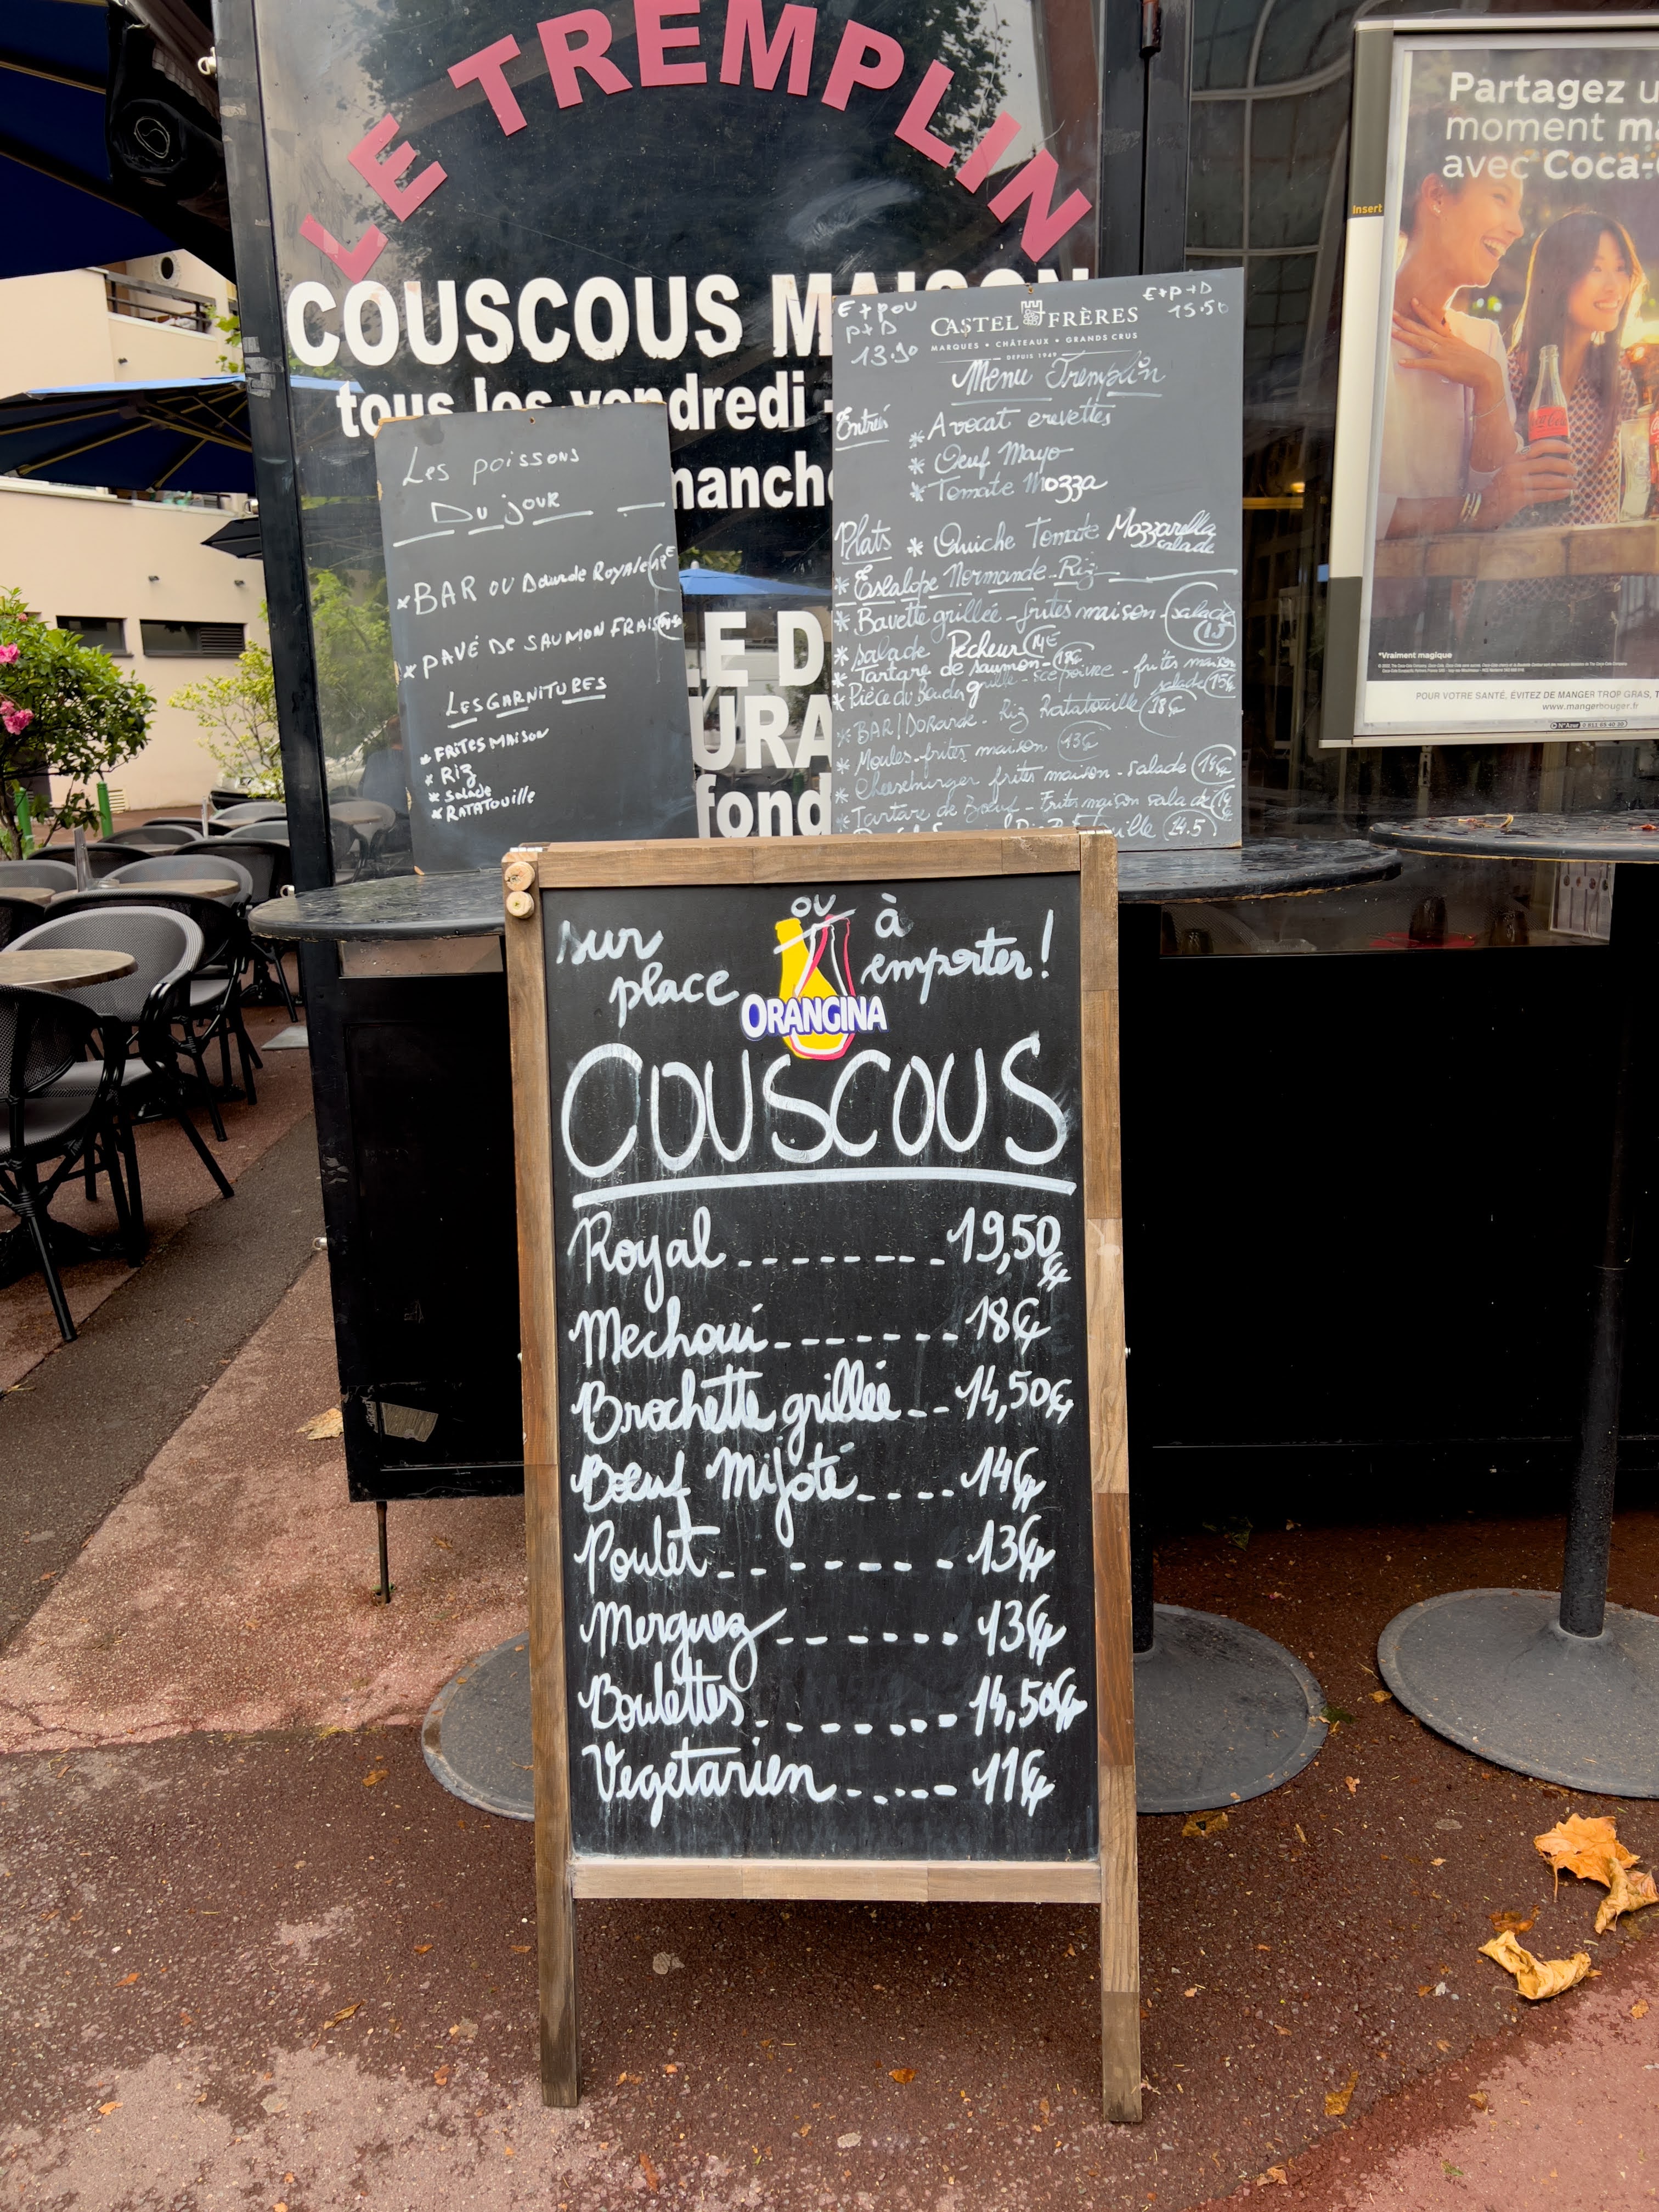 LE TREMPLIN
COUSCOUS MAISON
tous les vendredi -
manche
LE D
URA
fond
Les poissons
Du jour
* BAR OU Daurade Royale
* PAVÉ DE SAUMON FRAIS
LES GARNITURES
* FRITES MAISON
* Riz
* Salade
* RATATOUILLE
E+P OU
P+D
13.90
E+P+D
15.50
CASTEL FRÈRES
MARQUES • CHÂTEAUX • GRANDS CRUS
DEPUIS 1949
Menu Tremplin
Entrés
* Avocat crevettes
* Oeuf Mayo
* Tomate Mozza
Plats * Quiche Tomate Mozzarella
salade
* Escalope Normande - Riz
* Bavette grillée - frites maison - salade
15
* salade Pêcheur 14€
* Tartare de saumon - 18€ - frites maison
* Pièce du Boucher grillée - sce poivre - salade 15€
* BAR/DORADE - Riz Ratatouille 18€
* Moules-frites maison 13€
* Cheeseburger frites maison - salade 14€
* Tartare de Boeuf - Frites maison salade
24.5
Partagez u
moment ma
avec Coca-C
insert
*Vraiment magique
POUR VOTRE SANTÉ, ÉVITEZ DE MANGER TROP GRAS, T
www.mangerbouger.fr
sur place ou à emporter!
ORANGINA
COUSCOUS
Royal -------- 19,50€
Mechoui ------- 18€
Brochette grillée -- 14,50€
Boeuf Mijoté ---- 14€
Poulet ------- 13€
Merguez ------- 13€
Boulettes ------- 14,50€
Végétarien ----- 11€